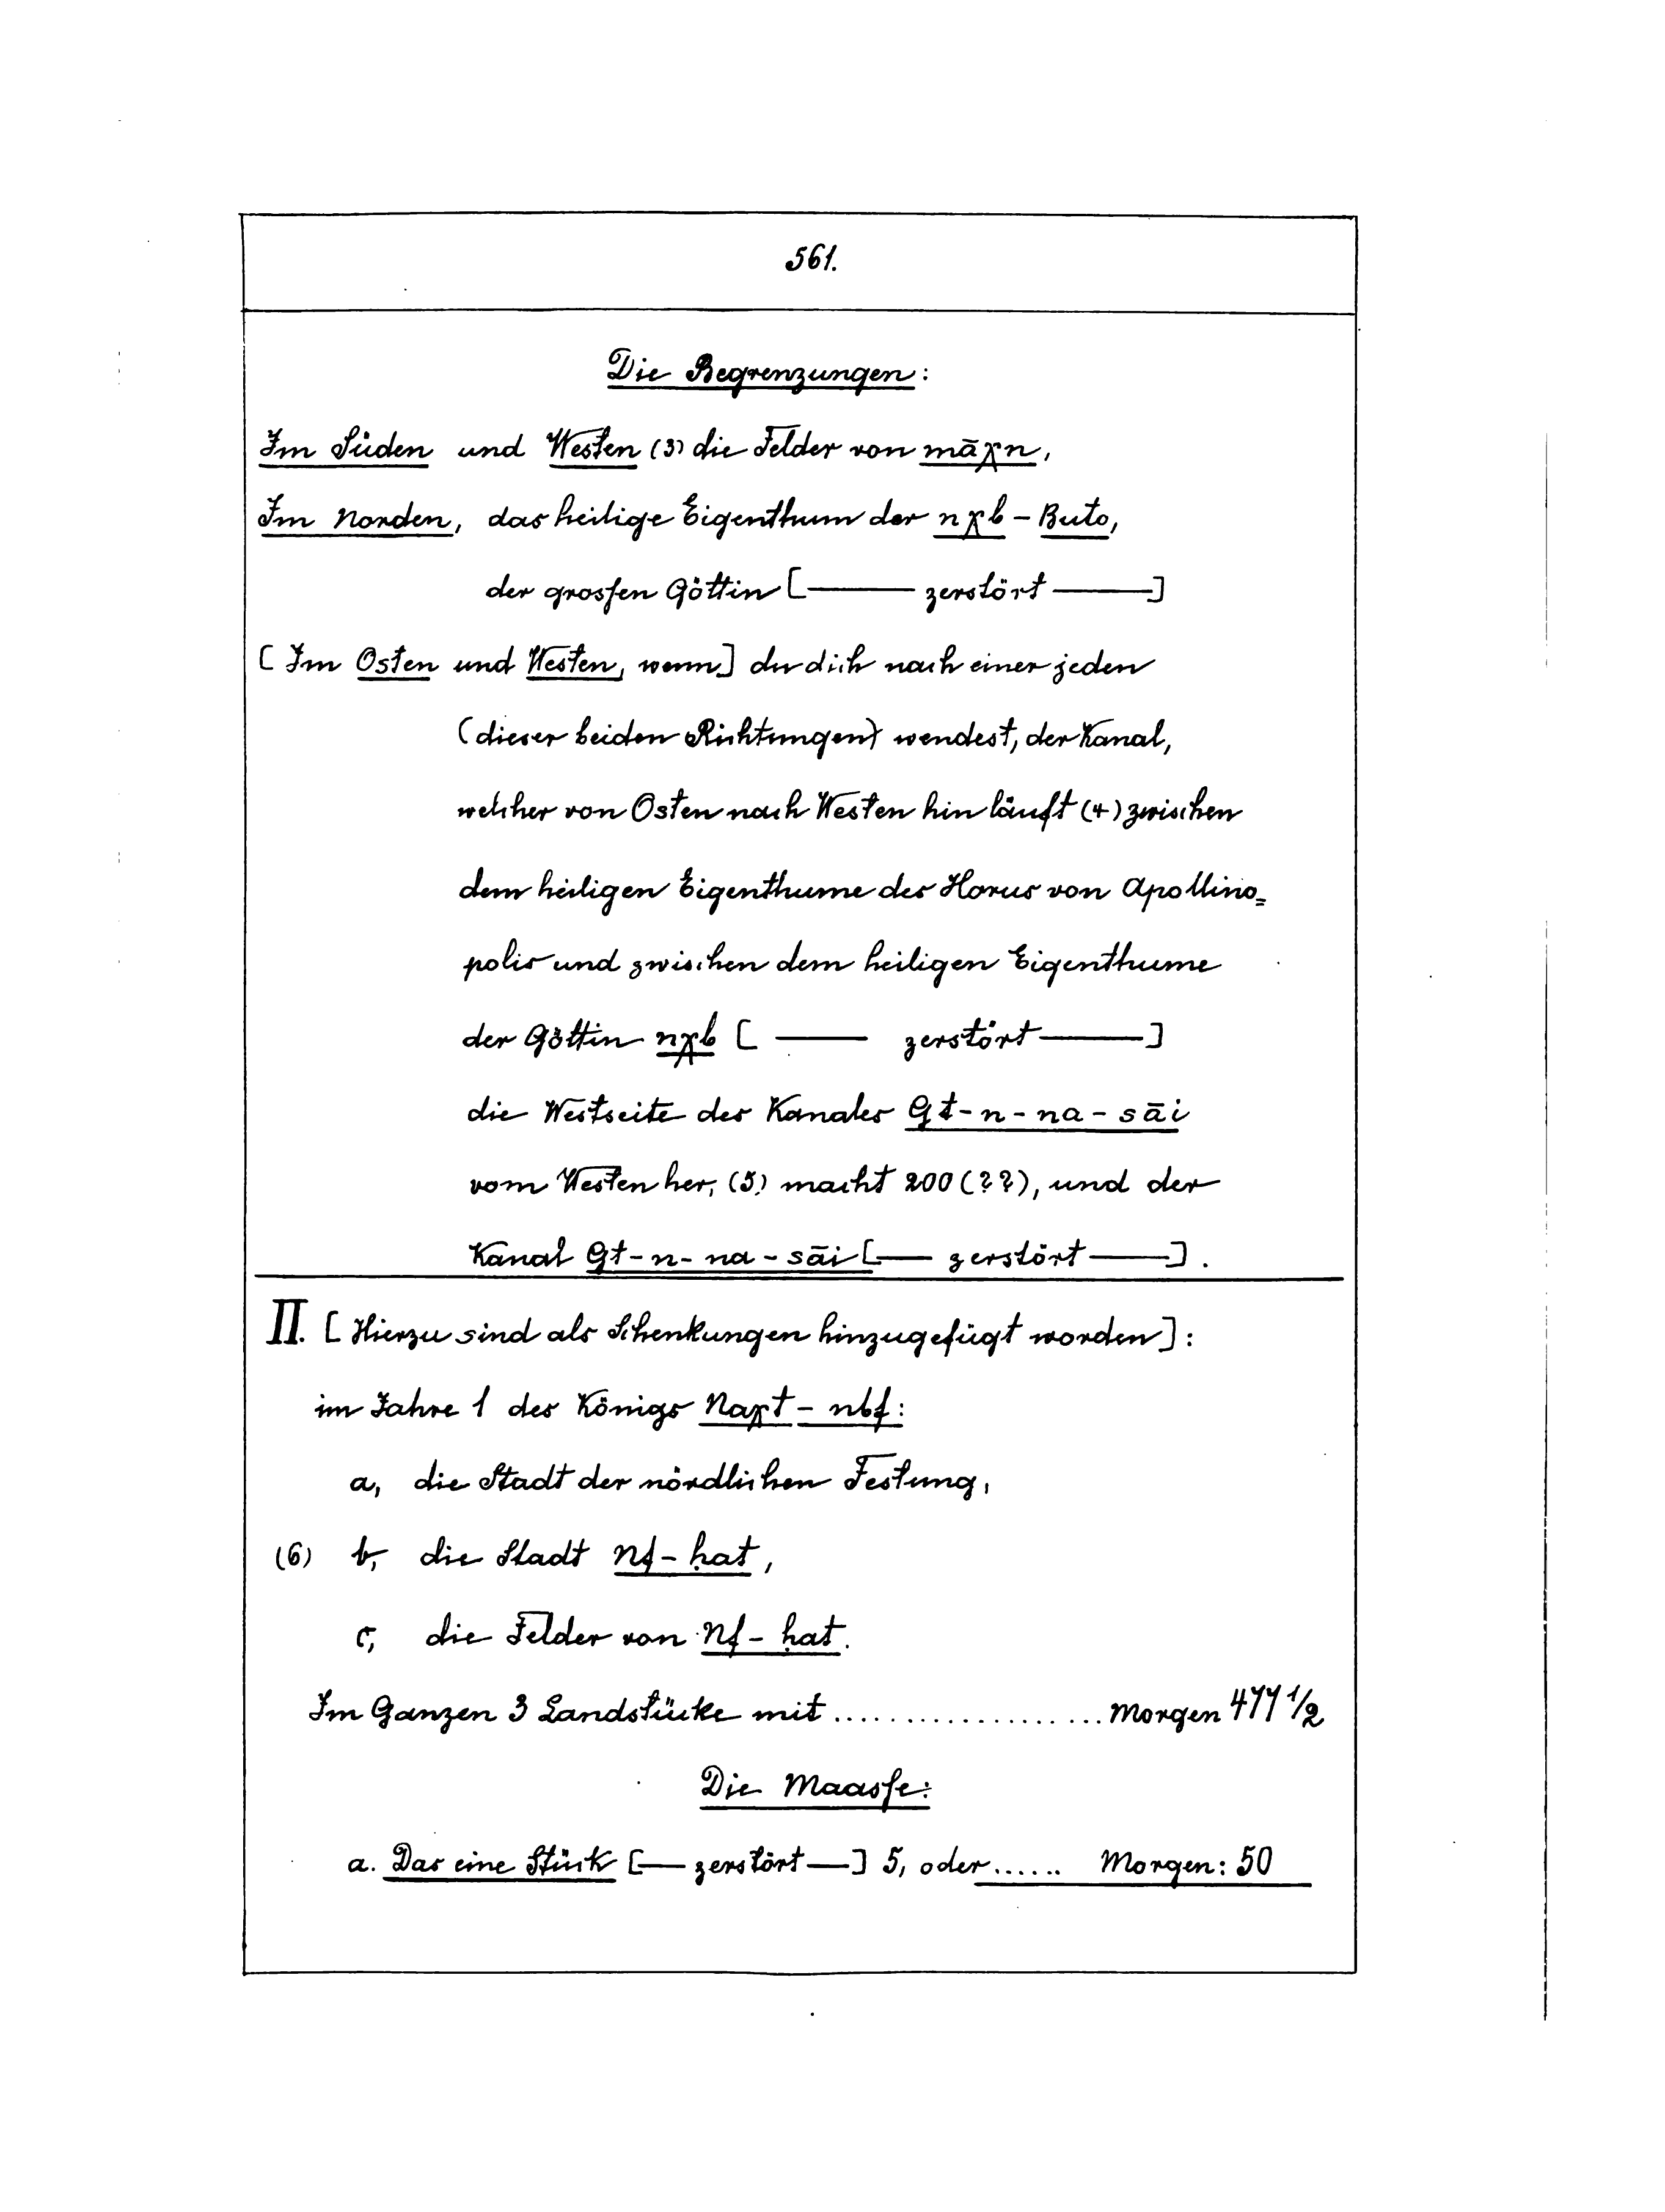 561.
Die Begrenzungen:
Im Süden und Westen (3) die Felder von māχn,
Im Norden, das heilige Eigenthum der nχb - Buto,
der grosſen Göttin [——— zerstört ———]
[Im Osten und Westen, wenn] du dich nach einer jeden
(dieser beiden Richtungen) wendest, der Kanal,
welcher von Osten nach Westen hin läuft (4) zwischen
dem heiligen Eigenthume des Horus von Apollino=
polis und zwischen dem heiligen Eigenthume
der Göttin nχb [ ——— zerstört ———]
die Westseite des Kanales Gt-n-na-sāi
vom Westen her, (5) macht 200 (??), und der
Kanal Gt-n-na-sāi [—— zerstört ———].
II. [Hierzu sind als Schenkungen hinzugefügt worden]:
im Jahre 1 des Königs Naχt-nbf:
a, die Stadt der nördlichen Festung,
(6) b, die Stadt Nf-ḥat,
c, die Felder von Nf-ḥat.
Im Ganzen 3 Landstücke mit ................... Morgen 477 1/2
Die Maasſe:
a. Das eine Stück [—— zerstört ——] 5, oder...... Morgen: 50